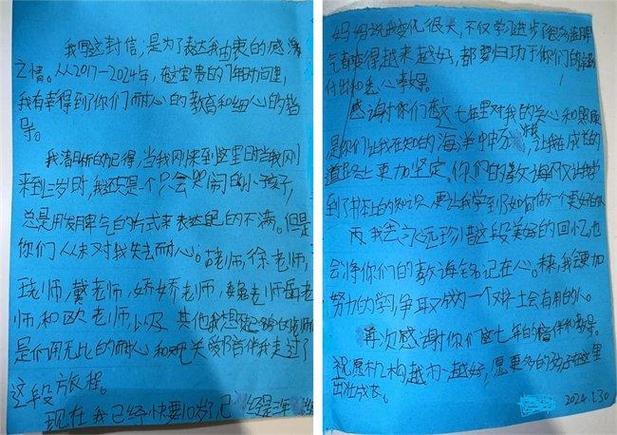 我写这封信，是为了表达我由衷的感激
之情。从2017—2024年，在这宝贵的7年时间里，
我有幸得到了你们耐心的教育和细心的指
导。
我清晰的记得，当我刚来到这里时当我刚
来到三岁时，我还是个只会哭闹的小孩子，
总是用发脾气的方式来表达自己的不满。但是
你们从未对我失去耐心。老师，徐老师，
老师，戴老师，娇娇老师，魏老师岳老
师，和欧老师，以及其他我想
是你们用无比的耐心和关爱陪伴我走过了
这段旅程。
现在我已经快要10岁了，已经是三年
妈妈说我变化很大，不仅学习进步了很多
气变得越来越好，都要归功于你们的
付出和悉心教导。
感谢你们这七年里对我的关心和照顾
是你们让我在知识的海洋中，让我在成长的
道路上更加坚定。你们的教诲不仅让我学
到了书本上的知识，更让我学到了如何做一个更好的
我会永远珍惜这段美好的回忆也
会将你们的教诲铭记在心。我会更加
努力的学习争取成为一个对社会有用的人。
再次感谢你们这七年的陪伴和教导。
祝愿机构越办越好，愿更多的孩子在这里
茁壮成长。
2024.1.30